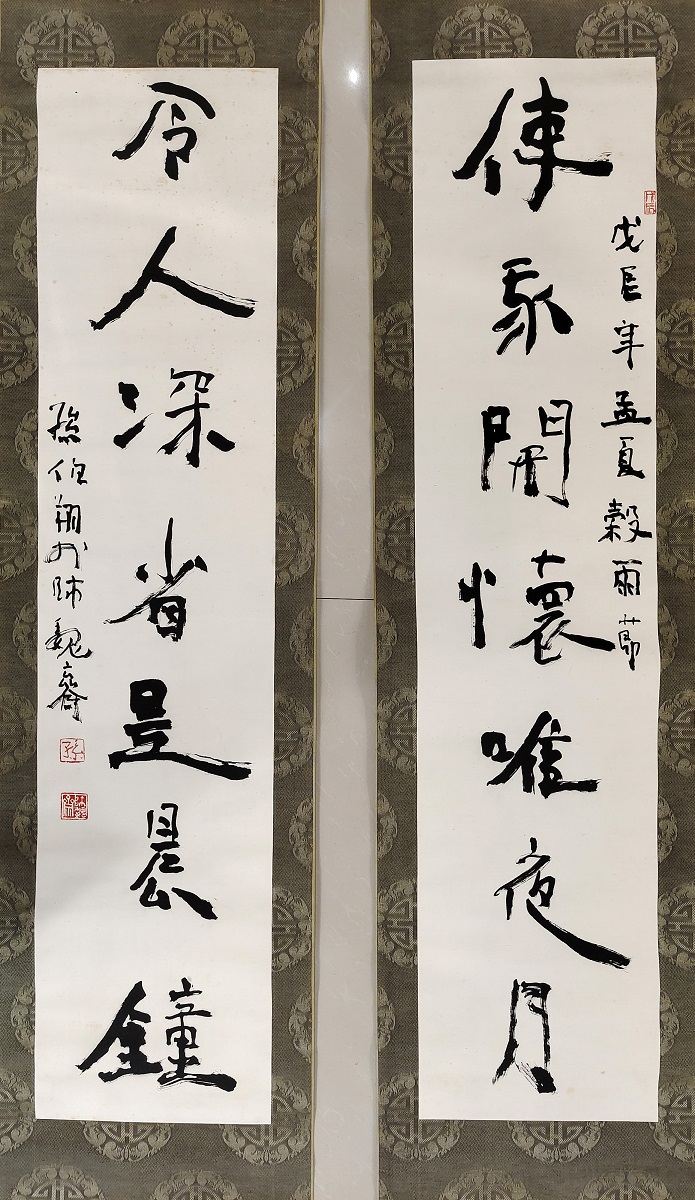 戊辰年孟夏穀雨節
使我開懷唯夜月
令人深省是晨鐘
孫伯翔於師魏齋